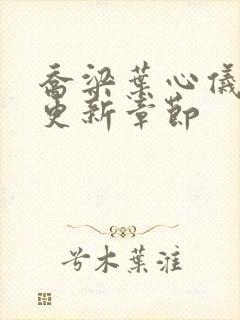 乔梁葉心儀
更新章節
兮木葉淮